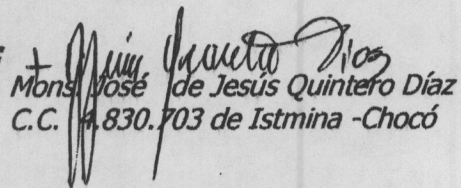 Quintero Díaz
Mons. José de Jesús Quintero Díaz
C.C. 4.830.703 de Istmina -Chocó